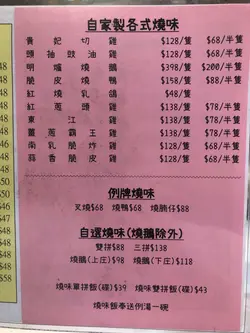 自家製各式燒味
貴妃切雞 $128/隻 $68/半隻
頭抽豉油雞 $128/隻 $68/半隻
明爐燒鵝 $398/隻 $200/半隻
脆皮燒鴨 $158/隻 $88/半隻
紅燒乳鴿 $48/隻
紅蔥頭雞 $138/隻 $78/半隻
東江雞 $138/隻 $78/半隻
薑蔥霸王雞 $138/隻 $78/半隻
南乳脆炸雞 $128/隻 $68/半隻
蒜香脆皮雞 $138/隻 $78/半隻
例牌燒味
叉燒$68 燒鴨$68 燒腩仔$88
自選燒味(燒鵝除外)
雙拼$88 三拼$138
燒鵝(上庄) $98 燒鵝(下庄) $118
燒味單拼飯(碟)$39 燒味雙拼飯(碟)$43
燒味飯奉送例湯一碗
48
48
48
$50
$48
$46
$48
$48
$58